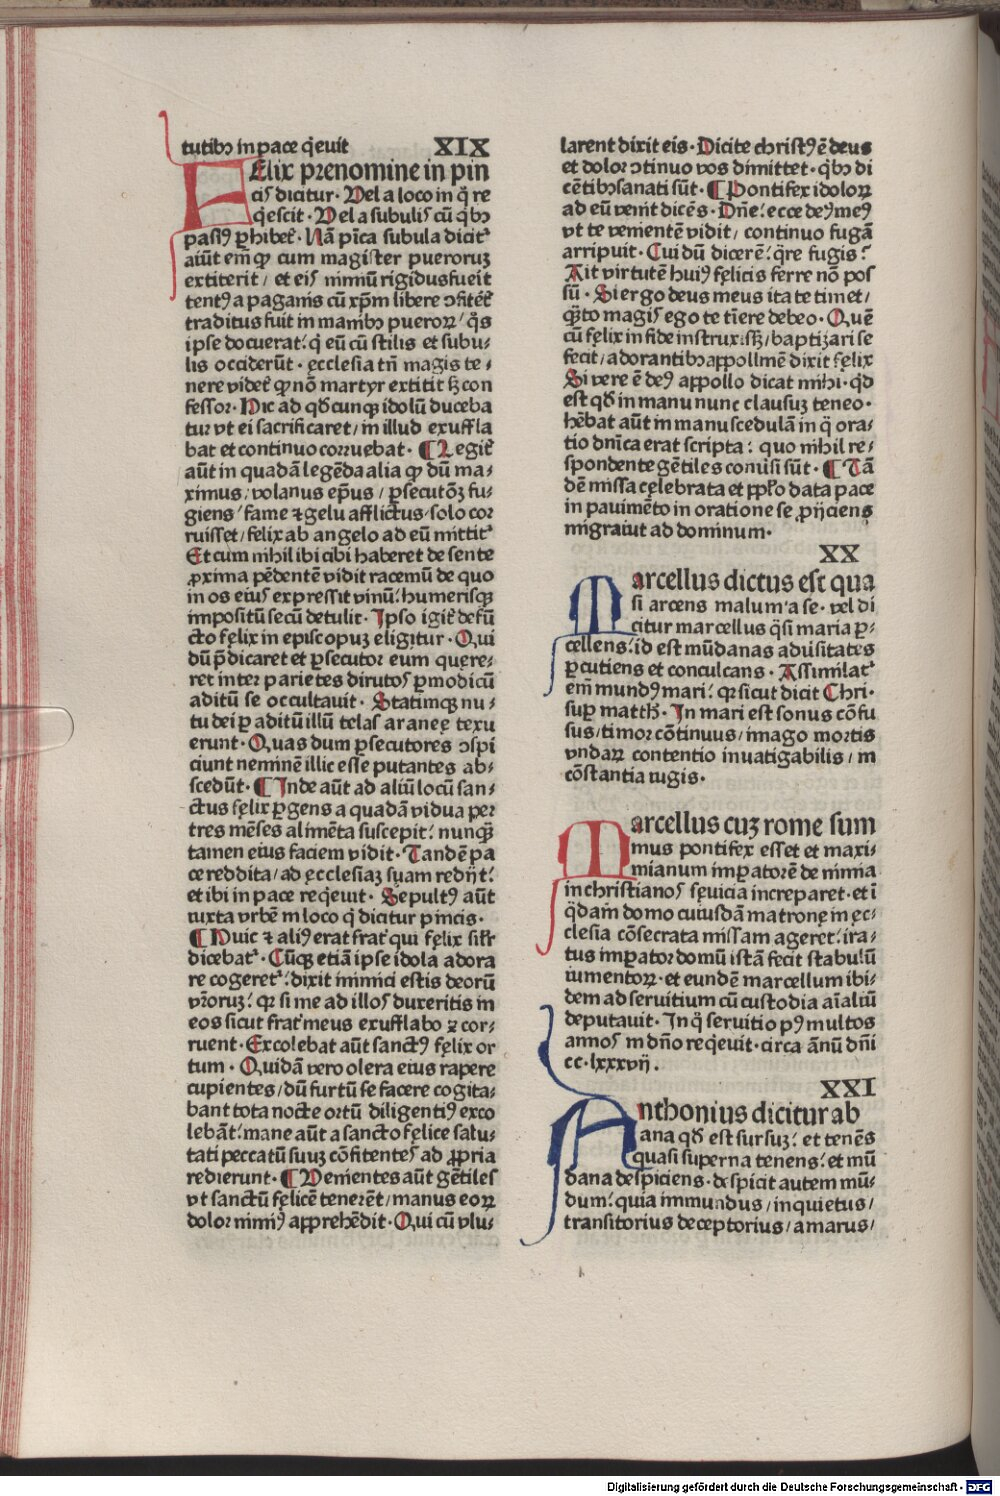 tutibꝫ in pace q̇euit XIX
Elix prenomine in pin
cis dicitur · Vel a loco in q̄ re
q̇escit · Vel a subulis cū q̇bꝫ
passꝰ ꝑhibet᷑ · Nā pn̄ca subula dicit᷑
aiūt em̄ ꝙ cum magister pueroruꝫ
extiterit / et eis nimiū rigidus fueĩt
tentꝰ a paganis cū xp̄m libere ↄfitēt᷑
traditus fuit in manibꝫ pueroꝝ / q̄s
ipse docuerat: q̇ eū cū stilis et subu⸗
lis occiderūt · ęcclesia tn̄ magis te⸗
nere videt᷑ ꝙ nō martyr extitit sꝫ con
fessor · Hic ad qd̄cunqꝫ idolū duceba
tur vt ei sacrificaret / in illud exuffla
bat et continuo corruebat · ¶ Legit᷑
aūt in quadā legēda alia ꝙ dū ma⸗
ximus / volanus ep̄us / ꝑsecutōꝫ fu⸗
giens / fame ⁊ gelu afflictus / solo cor
ruisset / felix ab angelo ad eū mittit᷑
Et cum nihil ibi cibi haberet de sente
ꝓxima pēdentē vidit racemū de quo
in os eius expressit vinū: humerisqꝫ
impositū secū detulit · Ipso igit᷑ defū
cto fęlix in episcopuꝫ eligitur · Qui
dū p̄dicaret et ꝑsecutor eum quęre⸗
ret inter parietes dirutos ꝑmodicū
aditū se occultauit · Statimqꝫ nu⸗
tu dei ꝑ aditū illū telas araneę texu
erunt · Quas dum ꝑsecutores ↄspi
ciunt neminē illic esse putantes ab⸗
scedūt · ¶ Inde aūt ad aliū locū san⸗
ctus fęlix ꝑgens a quadā vidua per
tres mēses alimēta suscepit: nunqꝫ̄
tamen eius faciem vidit · Tandē pa
ce reddita / ad ęcclesiaꝫ suam redijt:
et ibi in pace req̇euit · Sepultꝰ aūt
iuxta vrbē in loco q̇ dicitur pincis ·
¶ Huic ⁊ aliꝰ erat frat᷑ qui fęlix sil̄r
dicebat᷑ · Cūqꝫ etiā ipse idola adora
re cogeret᷑: dixit inimici estis deorū
vr̄oruꝫ: qꝛ si me ad illos duxeritis in
eos sicut frat᷑ meus exufflabo ⁊ cor⸗
ruent · Excolebat aūt sanctꝰ fęlix or
tum · Quidā vero olera eius rapere
cupientes / dū furtū se facere cogita⸗
bant tota nocte ortū diligentiꝰ exco
lebāt: mane aūt a sancto fęlice salu⸗
tati peccatū suuꝫ cōfitentes ad ꝓpria
redierunt · ¶ Venientes aūt gētiles
vt sanctū fęlicē tenerēt / manus eoꝝ
dolor nimiꝰ apprehēdit · Qui cū vlu⸗
larent dixit eis · Dicite christꝰ ē deus
et dolor ↄtinuo vos dimittet · q̇bꝫ di
cētibꝫ sanati sūt · ¶ Pontifex idoloꝝ
ad eū venit dicēs · Dn̄e: ecce deꝰ meꝰ
vt te venientē vidit / continuo fugā
arripuit · Cui dū dicerē: q̄re fugis:
Ait virtutē huiꝰ fęlicis ferre nō pos
sū · Si ergo deus meus ita te timet /
qꝫ̄to magis ego te tīere debeo · Quē
cū fęlix in fide instruxissꝫ / baptiꝫari se
fecit / adorantibꝫ appollinē dixit fęlix
Si vere ē deꝰ appollo dicat mihi · qd̄
est qd̄ in manu nunc clausuꝫ teneo ·
hēbat aūt in manu scedulā in q̄ ora⸗
tio dn̄ica erat scripta: quo nihil re⸗
spondente gētiles conuersi sūt · ¶ Tā
dē missa cęlebrata et pp̄lo data pace
in pauimēto in oratione se ꝓijciens
migrauit ad dominum ·
XX
Marcellus dictus est qua
si arcens malum a se · vel di
citur marcellus q̄si maria ꝑ⸗
cellens: id est mūdanas aduersitates
ꝑcutiens et conculcans · Assimilat᷑
em̄ mundꝰ mari: qꝛ sicut dicit Chri·
suꝑ matth̄ · In mari est sonus cōfu
sus / timor cōtinuus / imago mortis
vndaꝝ contentio inuatigabilis / in
cōstantia iugis ·
Marcellus cuꝫ rome sum
mus pontifex esset et maxi⸗
mianum imꝑatorē de nimia
in christianos sęuicia increparet · et ī
q̄dam domo cuiusdā matronę in ęc⸗
clesia cōsecrata missam ageret: ira⸗
tus imꝑator domū istā fecit stabulū
iumentoꝝ · et eundē marcellum ibi⸗
dem ad seruitium cū custodia aīaliū
deputauit · In q̄ seruitio pꝰ multos
annos in dn̄o req̇euit · circa ānū dn̄i
cc · lxxxvij ·
XXI
Anthonius dicitur ab
ana qd̄ est sursuꝫ: et tenēs
quasi superna tenens: et mū
dana despiciens · despicit autem mū⸗
dum: quia immundus / inquietus /
transitorius deceptorius / amarus /
Digitalisierung gefördert durch die Deutsche Forschungsgemeinschaft - DFG